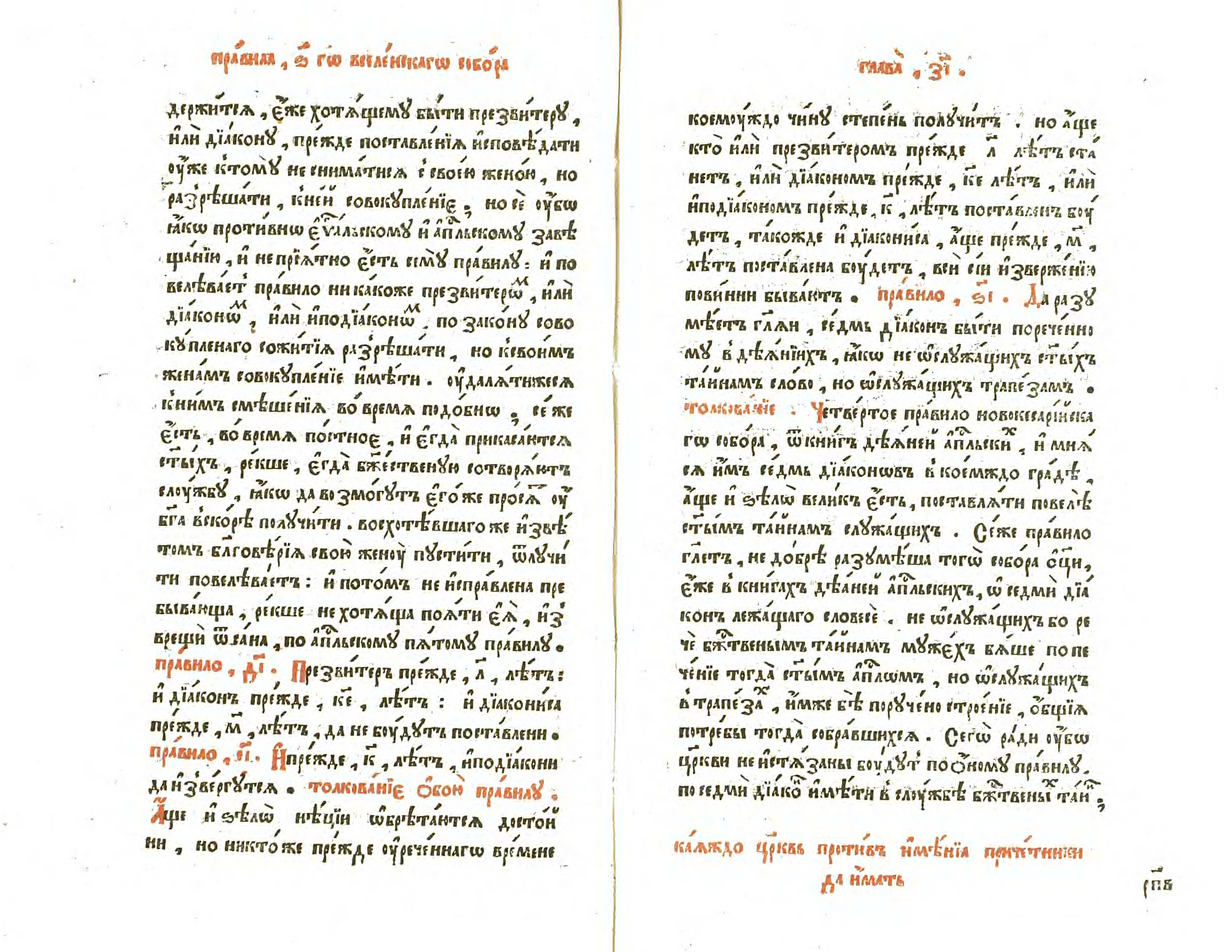 пра́вила , ѕ҃ гѡ вселе́нскагѡ собо́ра
держи́тсѧ , є҆́же хотѧ́щемꙋ бы́ти презви́терꙋ ,
и҆лѝ дїа́конꙋ , пре́жде поставле́нїѧ и҆сповѣ́дати
ѹ҆́же ктомꙋ̀ не снима́тисѧ с свое́ю жено́ю , но
разрѣша́ти , к не́й совокꙋпле́нїє . но сѐ ѹ҆́бѡ
ꙗ҆́кѡ проти́внѡ є҆ѵ҃льскомꙋ и҆ а҆пⷭ҇льскомꙋ завѣ
ща́нїю , и҆ непрїѧ́тно є҆́сть семꙋ̀ пра́вилꙋ : и҆ по
велѣва́ет пра́вило никако́же презви́терѡⷨ , и҆лѝ
дїа́конѡⷨ , и҆лѝ и҆подїа́конѡⷨ . по зако́нꙋ сово
кꙋ́пленаго сожи́тїѧ разрѣша́ти , но к свои́мъ
жена́мъ совокꙋпле́нїе и҆мѣ́ти . ѹ҆далѧ́тижесѧ
к ни́мъ смѣше́нїѧ во вре́мѧ подо́бнѡ . се́ же
є҆́сть , во вре́мѧ по́стноє , и҆ є҆гда̀ прикаса́ютсѧ
ст҃ы́хъ , ре́кше , є҆гда̀ бж҃е́ственꙋю сотворѧ́ютъ
слоу́жбꙋ , ꙗ҆́кѡ да возмо́гꙋтъ є҆го́же про́сѧⷮ ѹ҆
бг҃а вско́рѣ полꙋчи́ти . восхотѣ́вшаго же и҆звѣ́
томъ бл҃говѣ́рїѧ свою̀ женоу̀ пꙋсти́ти , ѿлꙋчи́
ти повелѣва́етъ : и҆ пото́мъ не и҆спра́влена пре
быва́юща , ре́кше не хотѧ́ща поѧ́ти є҆ѧ̀ , и҆з̾
врещѝ ѿ са́на , по а҆пⷭ҇льскомꙋ пѧ́томꙋ пра́вилꙋ .
пра́вило , д҃і . Презви́теръ пре́жде , л҃ , лѣ́тъ :
и҆ дїа́конъ пре́жде , к҃е , лѣ́тъ : и҆ дїакони́са
пре́жде , м҃ , лѣ́тъ , да не боу́дꙋтъ поста́влени .
пра́вило , є҃і . И҆ пре́жде , к҃ , лѣ́тъ , и҆подїа́кони
да и҆зве́ргꙋтсѧ . толкова́нїє ѻ҆бою̀ пра́вилꙋ .
А҆́ще и҆ ѕѣлѡ̀ нѣ́цїи ѡ҆брѣта́ютсѧ досто́й
ни , но никто́же пре́жде ѹ҆рече́ннагѡ вре́мене
глава̀ , з҃і .
коемꙋ́ждо чи́нꙋ степе́нь полꙋчи́тъ . но а҆́ще
кто̀ и҆лѝ презви́теромъ пре́жде л҃ лѣ́тъ ста́
нетъ , и҆лѝ дїа́кономъ пре́жде , к҃е лѣ́тъ , и҆лѝ
и҆подїа́кономъ пре́жде , к҃ , лѣ́тъ поста́вленъ боу́
детъ , тако́жде и҆ дїакони́са , а҆́ще пре́жде , м҃ ,
лѣ́тъ поста́влена боу́детъ , всѝ сїѝ и҆зверже́нїю
пови́нни быва́ютъ . пра́вило , ѕ҃і . Да разꙋ
мѣ́етъ гл҃ѧй , се́дмь дїа́конъ бы́ти порече́нно
мꙋ в дѣѧ́нїихъ , ꙗ҆́кѡ не ѡ҆ слꙋжа́щихъ ст҃ы́хъ
та́йнамъ сло́во , но ѡ҆ слꙋжа́щихъ трапе́замъ .
толкова́нїе . Четве́ртое пра́вило новокесарі́йска
гѡ собо́ра , ѿ кни́гъ дѣѧ́ней а҆пⷭ҇льскиⷯ , и҆ мнѧ́
сѧ и҆́мъ се́дмь дїа́конѡвъ в кое́мждо гра́дѣ ,
а҆́ще и҆ ѕѣлѡ̀ вели́къ є҆́сть , поставлѧ́ти повелѣ̀
ст҃ы́мъ та́йнамъ слꙋжа́щихъ . Се́же пра́вило
гл҃етъ , не до́брѣ разꙋмѣ́ша тогѡ̀ собо́ра ѻ҆ц҃ы ,
є҆́же в кни́гахъ дѣѧ́ней а҆пⷭ҇льскихъ , ѡ҆ седмѝ дїа́
конъ лежа́щаго словесѐ . не ѡ҆ слꙋжа́щихъ бо ре
чѐ бж҃твенымъ та́йнамъ мꙋ́жехъ бѧ́ше попе
че́нїе тогда̀ ст҃ы́мъ а҆пⷭ҇лѡмъ , но ѡ҆ слꙋжа́щихъ
в трапе́заⷯ , и҆́мже бѣ̀ порꙋ́чено строе́нїе , ѻ҆́бщїѧ
потре́бы тогда̀ собра́вшихсѧ . Сегѡ̀ ра́ди ѹ҆́бѡ
цр҃кви не и҆стѧ́заны боу́дꙋт по ѻ҆́номꙋ пра́вилꙋ ,
по седмѝ дїа́коⷩ и҆мѣ́ти в слоу́жбѣ бж҃твеныⷯ та́йⷩ ;
ка́ѧждо цр҃квь проти́въ и҆мѣ́нїѧ приче́тники
да и҆́мать
рп҃в